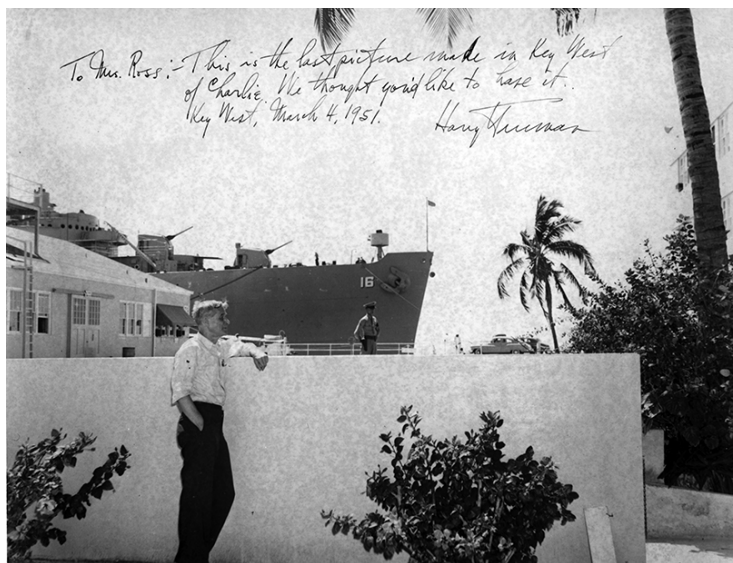 To Mrs. Ross:- This is the last picture made in Key West
of Charlie. We thought you'd like to have it..
Key West, March 4, 1951. Harry Truman
16